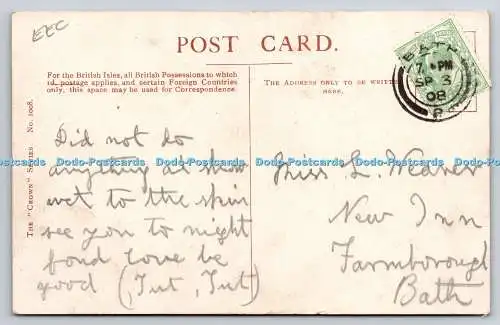 EEC
POST CARD.
For the British Isles, all British Possessions to which
1d. postage applies, and certain Foreign Countries
only, this space may be used for Correspondence.
The Address only to be written
here.
BATH
7 PM
SP 3
08
The "Crown" Series No. 1008.
Did not do
anything at show
wet to the skin
see you to night
fond love be
good (, Tut, Tut)
Miss L. Weaver
New Inn
Farmborough
Bath
Dodo-Postcards Dodo-Postcards Dodo-Postcards Dodo-Postcards Dodo-Postcards